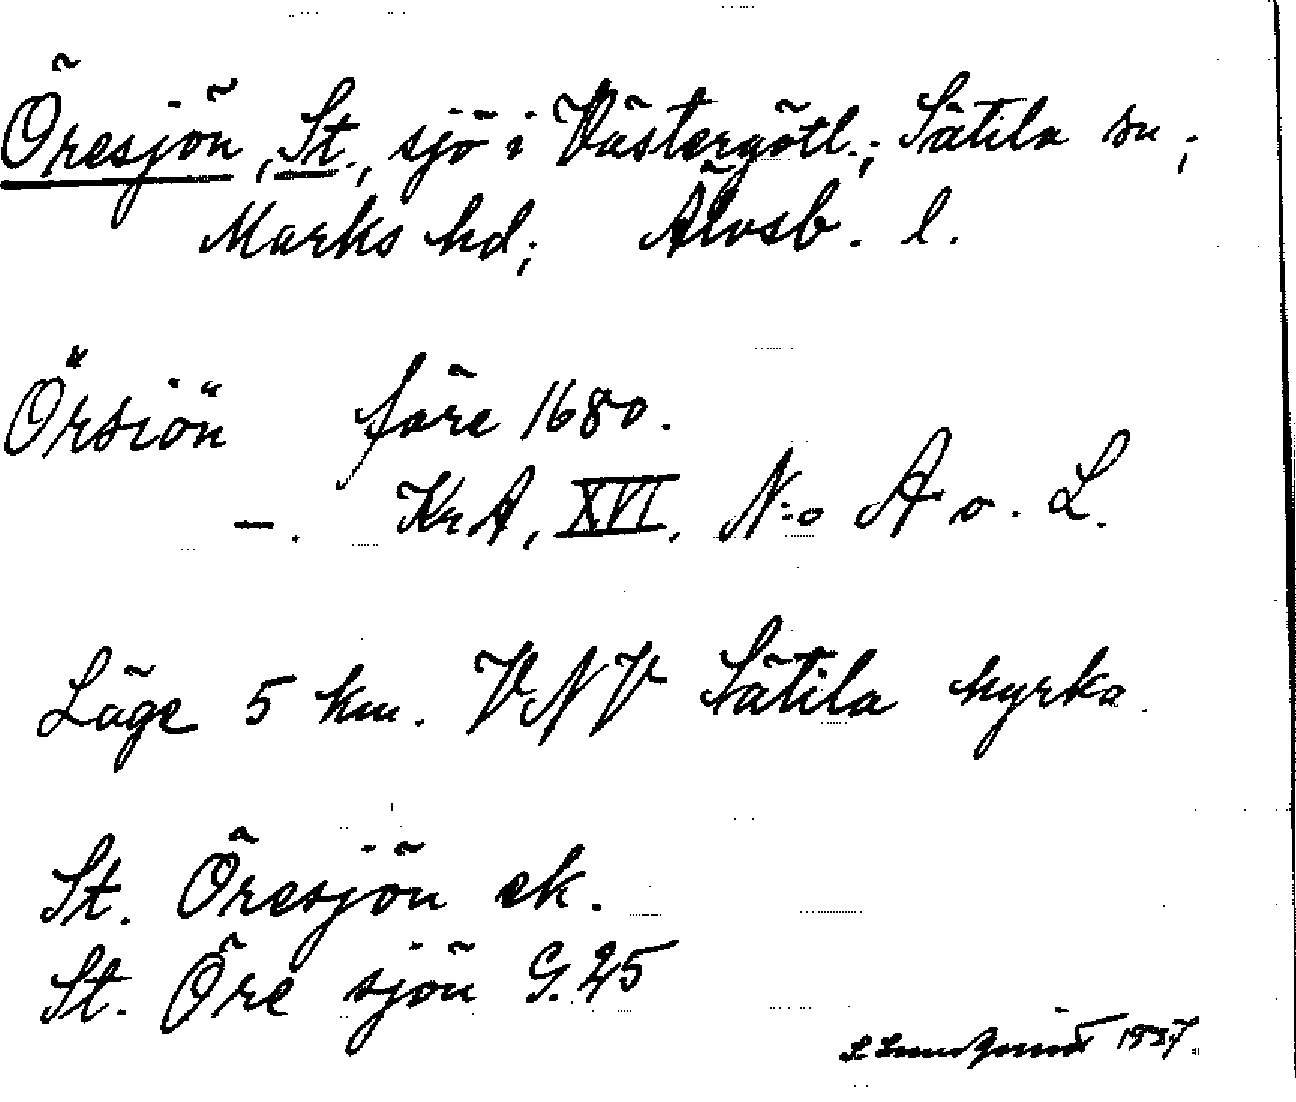 Öresjön, St., sjö i Västergötl.; Sätila sn;
Marks hd; Älvsb. l.
Örsiön före 1680.
—. KrA, XVI, N:o A o. L.
Läge 5 km. VNV Sätila kyrka.
St. Öresjön ek.
St. Öre sjön G. 25
1937.